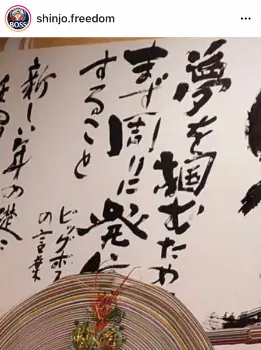 shinjo.freedom
BOSS
夢を掴むため
まず周りに発信
すること
ビッグボス
の言葉
新しい年の礎に